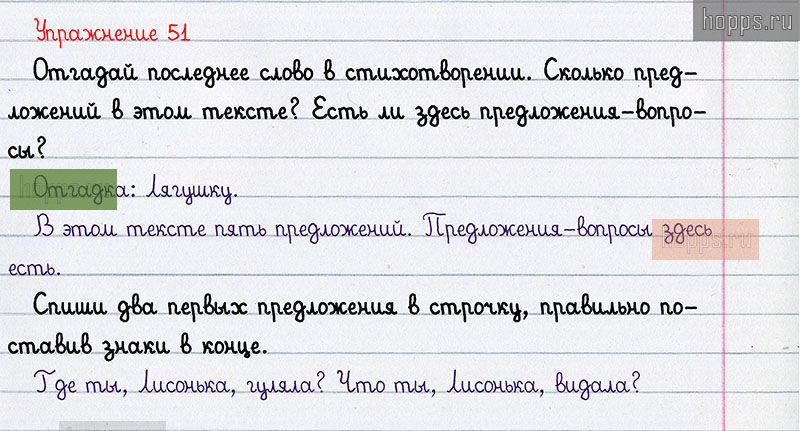 hopps.ru
Упражнение 51
Отгадай последнее слово в стихотворении. Сколько пред-
ложений в этом тексте? Есть ли здесь предложения-вопро-
сы?
Отгадка: Лягушку.
В этом тексте пять предложений. Предложения-вопросы здесь
есть.
hopps.ru
Спиши два первых предложения в строчку, правильно по-
ставив знаки в конце.
Где ты, Лисонька, гуляла? Что ты, Лисонька, видала?